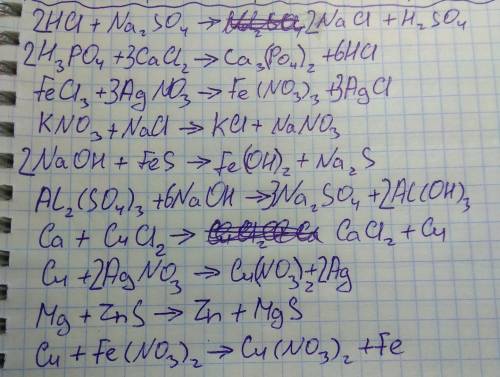 2HCl + Na₂SO₄ → 2NaCl + H₂SO₄
2H₃PO₄ + 3CaCl₂ → Ca₃(PO₄)₂ + 6HCl
FeCl₃ + 3AgNO₃ → Fe(NO₃)₃ + 3AgCl
KNO₃ + NaCl → KCl + NaNO₃
2NaOH + FeS → Fe(OH)₂ + Na₂S
AL₂(SO₄)₃ + 6NaOH → 3Na₂SO₄ + 2AL(OH)₃
Ca + CuCl₂ → CaCl₂ + Cu
Cu + 2AgNO₃ → Cu(NO₃)₂ + 2Ag
Mg + ZnS → Zn + MgS
Cu + Fe(NO₃)₂ → Cu(NO₃)₂ + Fe